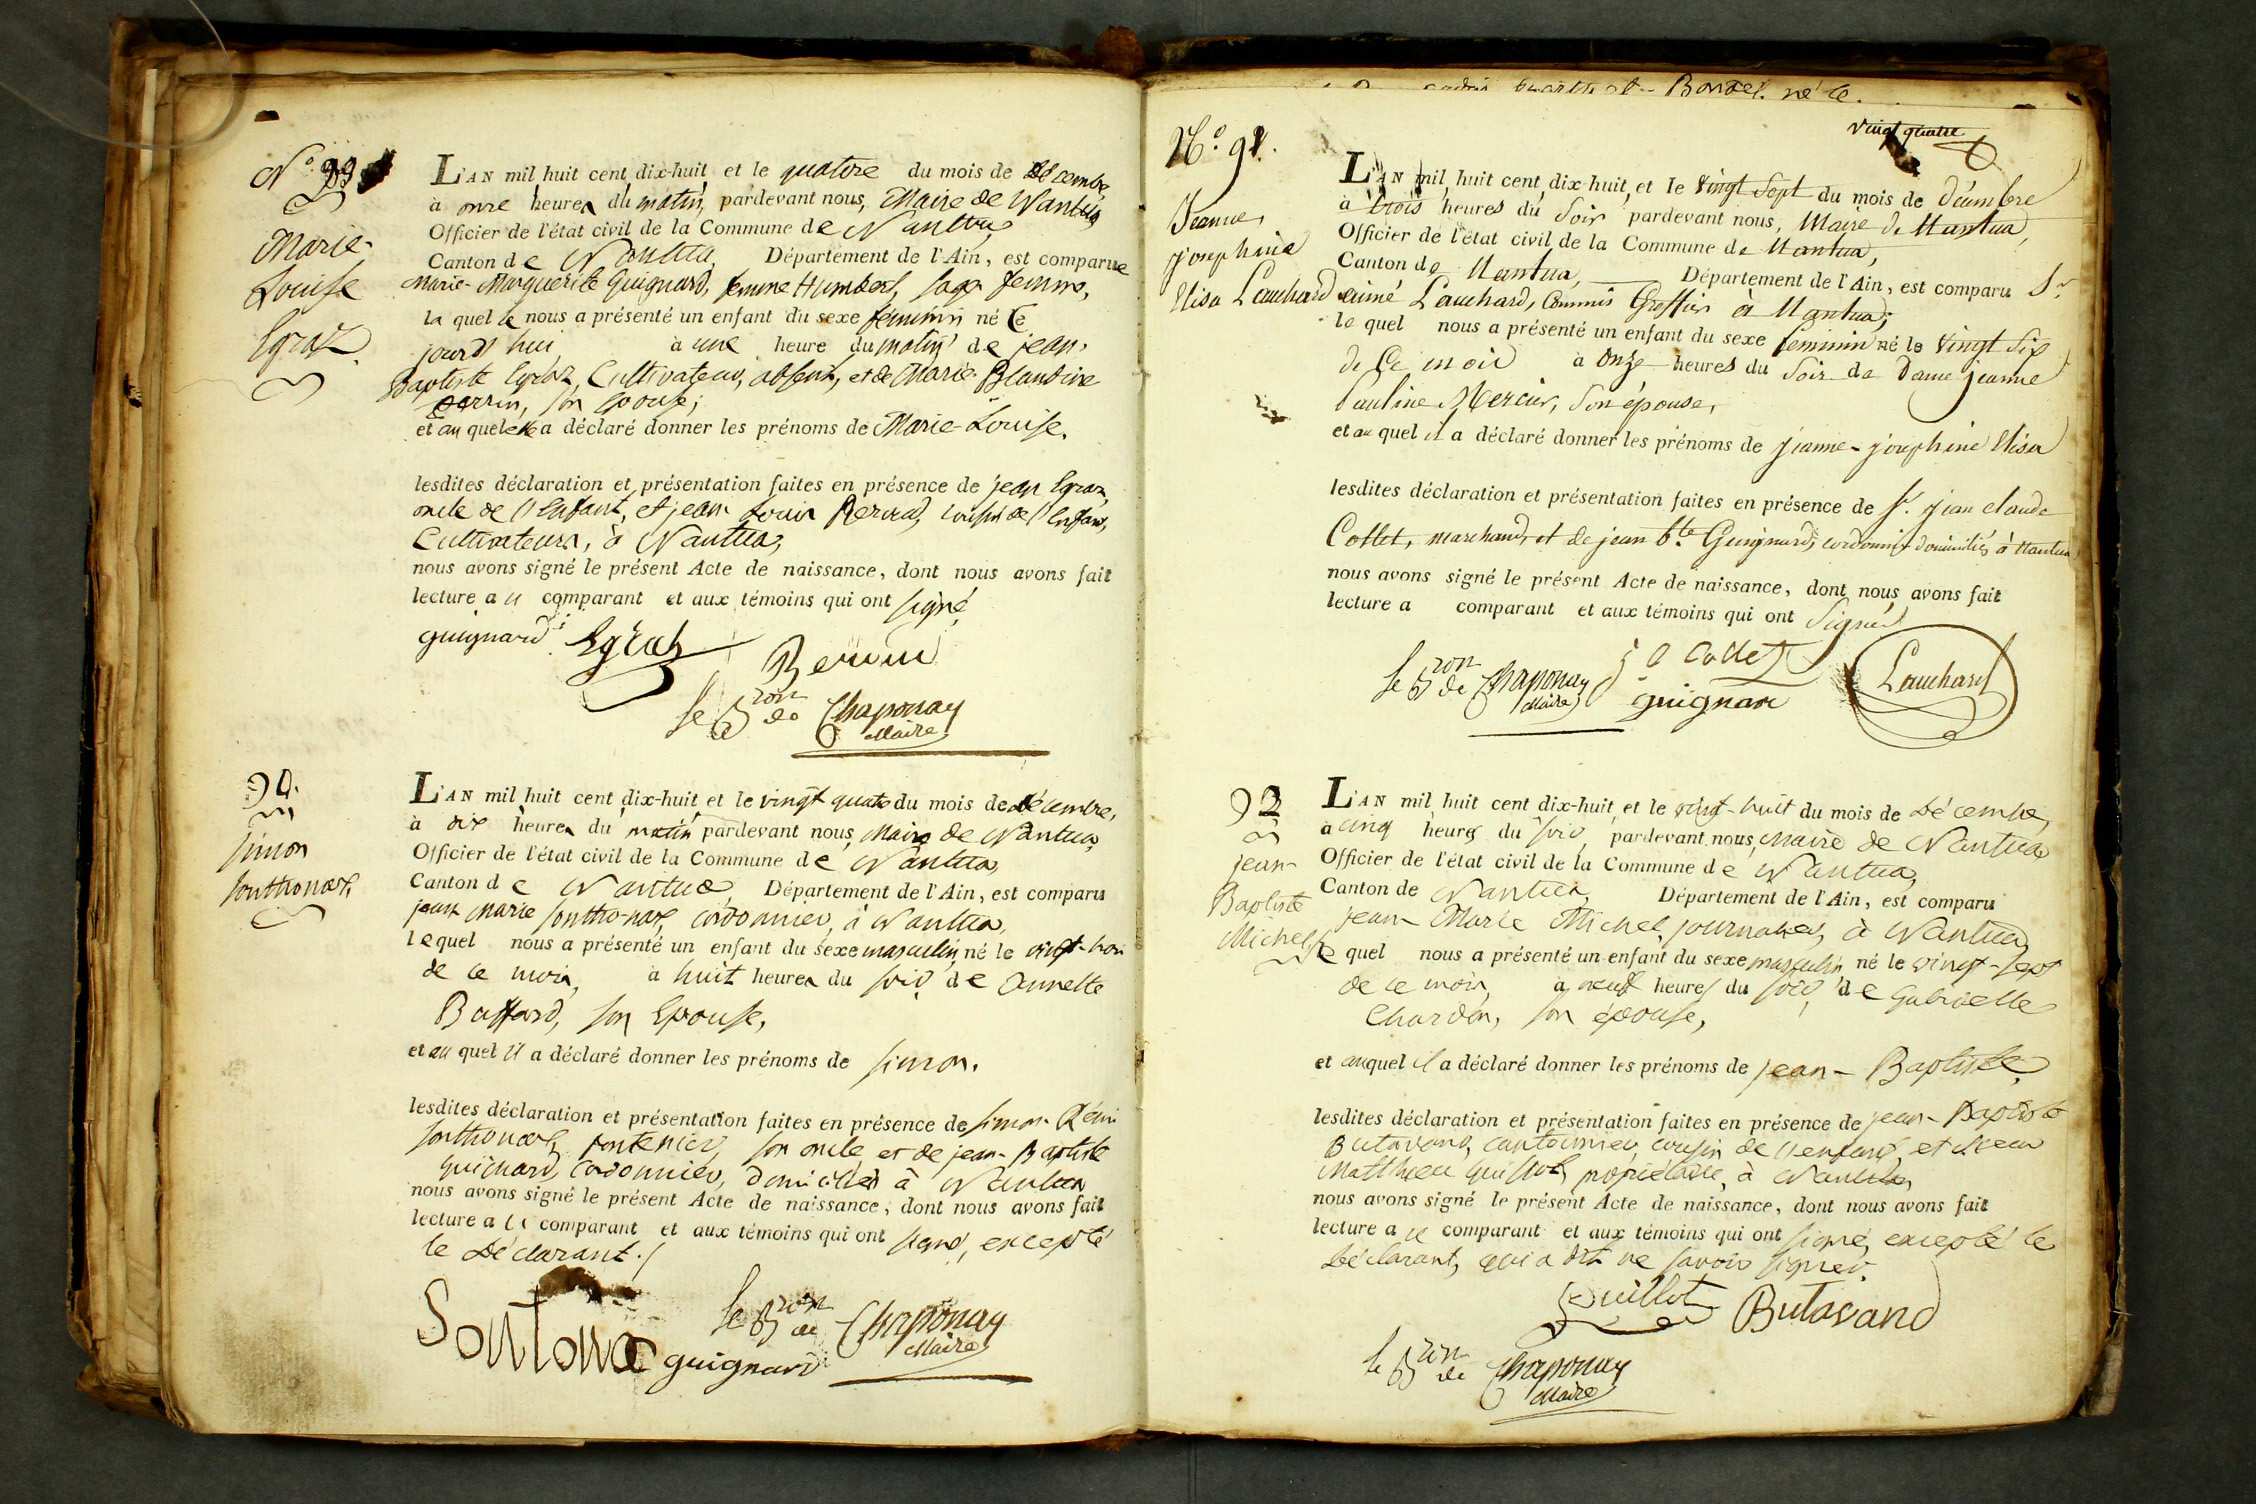 N.º 89
Marie-
Louise
Egraz
L'AN mil huit cent dix-huit et le quatorze du mois de décembre,
à onze heures du matin, pardevant nous, Maire de Nantua,
Officier de l'état civil de la Commune de Nantua,
Canton de Nantua, Département de l'Ain, est comparue
Marie-Marguerite Guignard, femme Humbert, sage femme,
la quelle nous a présenté un enfant du sexe féminin né ce
jourd'hui à une heure du matin de jean-
Baptiste Egraz, Cultivateur, absent, et de Marie Blandine
perrin, son épouse;
et au quel elle a déclaré donner les prénoms de Marie-Louise.
lesdites déclaration et présentation faites en présence de jean Egraz,
oncle de l'Enfant, et jean Louis cousin de l'enfant,
Cultivateurs, à Nantua,
nous avons signé le présent Acte de naissance, dont nous avons fait
lecture au comparant et aux témoins qui ont signé
guignard Egraz
le Bron de Chaponay
Maire
90.
simon
sonthonax
L'AN mil huit cent dix-huit et le vingt quatre du mois de décembre,
à dix heures du matin pardevant nous, Maire de Nantua,
Officier de l'état civil de la Commune de Nantua,
Canton de Nantua, Département de l'Ain, est comparu
jean marie sonthonax, cordonnier, à Nantua,
lequel nous a présenté un enfant du sexe masculin, né le vingt-trois
de ce mois, à huit heures du soir, de Annette
Buffard, son Epouse,
et au quel il a déclaré donner les prénoms de simon.
lesdites déclaration et présentation faites en présence de simon-Rémi
sonthonax, son oncle et de jean-Baptiste
guignard, cordonnier, domiciliés à Nantua
nous avons signé le présent Acte de naissance, dont nous avons fait
lecture au comparant et aux témoins qui ont signé, excepté
le Déclarant./
Sontonax guignard
le Bron de Chaponay
Maire
Bondet né le
vingt quatre
N.º 91.
Jeanne,
josephine
Elisa Lauchard
L'AN mil huit cent dix-huit, et le vingt sept du mois de décembre
à trois heures du soir pardevant nous, Maire de Nantua,
Officier de l'état civil de la Commune de Nantua,
Canton de Nantua, Département de l'Ain, est comparu Sr
aimé Lauchard, Commis Greffier à Nantua;
le quel nous a présenté un enfant du sexe feminin né le vingt six
de Ce mois à onze heures du soir de Dame jeanne
Pauline Mercier, son épouse,
et au quel il a déclaré donner les prénoms de jeanne-josephine Elisa
lesdites déclaration et présentation faites en présence de Sr. jean claude
Collet, marchand, et de jean bte Guignard, cordonnier domiciliés à Nantua
nous avons signé le présent Acte de naissance, dont nous avons fait
lecture a comparant et aux témoins qui ont signés
le Bron de Chaponay
Maire
j C Collet
guignard
Lauchard
92
jean-
Baptiste
Michel
L'AN mil huit cent dix-huit et le vingt-huit du mois de Décembre,
à cinq heures du soir, pardevant nous, Maire de Nantua
Officier de l'état civil de la Commune de Nantua,
Canton de Nantua, Département de l'Ain, est comparu
jean-Marie Michel, journalier, à Nantua,
le quel nous a présenté un enfant du sexe masculin né le vingt-sept
de ce mois, à neuf heures du soir, de Gabrielle
Chardon, son épouse,
et auquel il a déclaré donner les prénoms de jean-Baptiste,
lesdites déclaration et présentation faites en présence de jean-Baptiste
Butavand, cantonnier, cousin de l'enfant, et
Matthieu propriétaire, à Nantua
nous avons signé le présent Acte de naissance, dont nous avons fait
lecture au comparant et aux témoins qui ont signé, excepté le
Déclarant, qui a dit ne savoir signer.
Butavand
le Bron de Chaponay
Maire